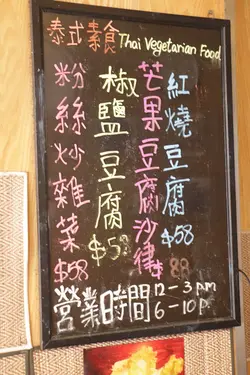 泰式素食 Thai Vegetarian Food
紅燒豆腐 $58
芒果豆腐沙律 $88
椒鹽豆腐 $58
粉絲炒雜菜 $58
營業時間 12-3pm
6-10p.